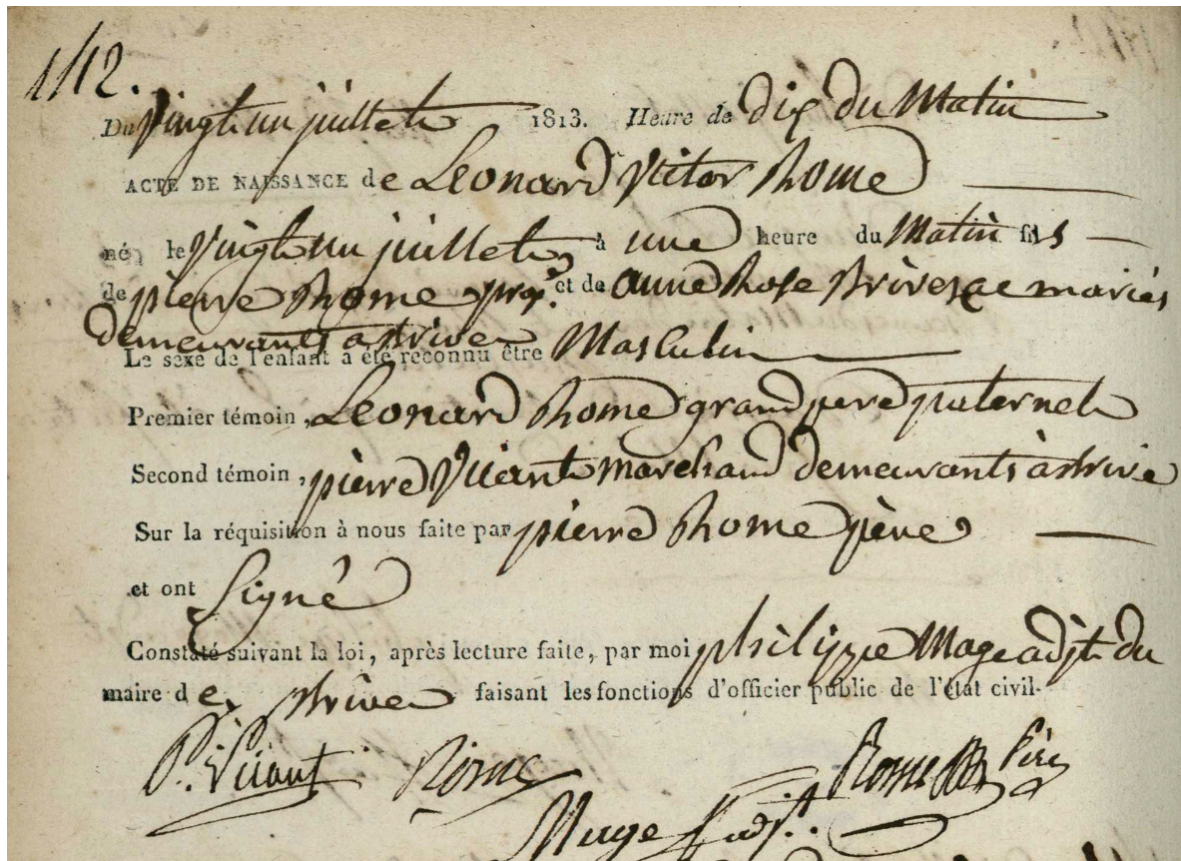 112.
Du vingt un juillet 1813. Heure de dix du Matin
ACTE DE NAISSANCE de Leonard Victor Rome
né le vingt un juillet à une heure du Matin fils
de pierre Rome prop.re et de anne Rose Brivezac mariés
demeurants a Brive
Le sexe de l'enfant a été reconnu être Masculin
Premier témoin, Leonard Rome grand pere paternel
Second témoin, pierre marchand demeurants à Brive
Sur la réquisition à nous faite par pierre Rome père
et ont Signé
Constaté suivant la loi, après lecture faite, par moi philippe Mage adjt du
maire de Brive faisant les fonctions d'officier public de l'état civil.
Rome Rome père
Mage adjt.